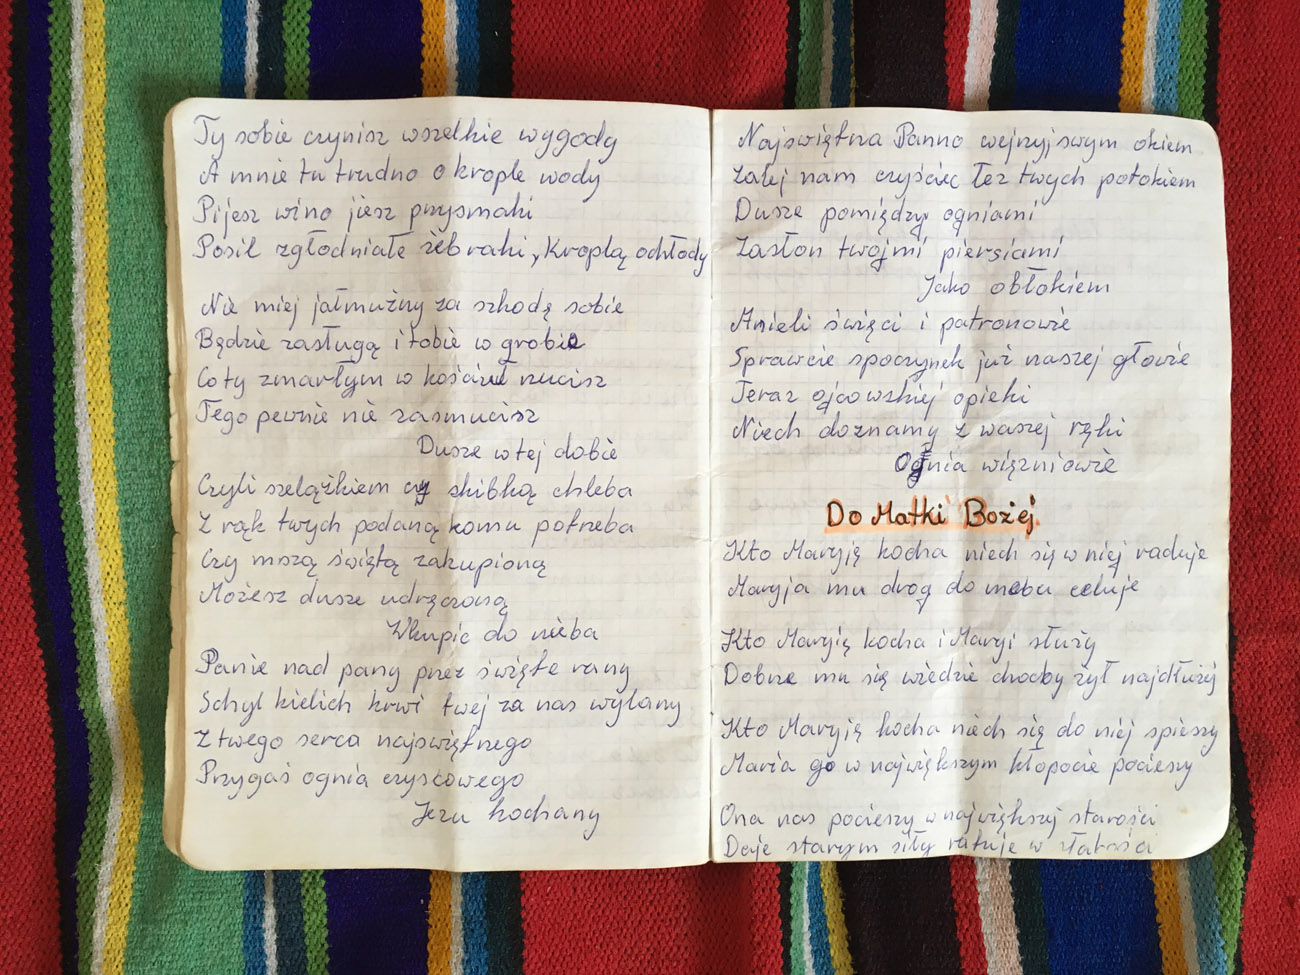 Ty sobie czynisz wszelkie wygody
A mnie tu trudno o krople wody
Pijesz wino jesz przysmaki
Posil zgłodniałe żebraki, Kroplą ochłody
Nie miej jałmużny za szkodę sobie
Będzie zasługą i tobie w grobie
Co ty zmarłym w kościuł rzucisz
Tego pewnie nie zasmucisz
Dusze w tej dobie
Czyli szelążkiem czy skibką chleba
Z rąk twych podaną komu potrzeba
Czy mszą świętą zakupioną
Możesz dusze udręczoną
Wkupic do nieba
Panie nad pany przez święte rany
Schyl kielich krwi twej za nas wylany
Z twego serca najswiętrzego
Przygaś ognia czyscowego
Jezu kochany
Najświętrza Panno wejrzyj swym okiem
Zalej nam czyściec łez twych potokiem
Dusze pomiędzy ogniami
Zasłon twojmi piersiami
Jako obłokiem
Anieli święci i patronowie
Sprawcie spoczynek już naszej głowie
Teraz ojcowskiej opieki
Niech doznamy z waszej ręki
Ognia więzniowie
Do Matki Bożej
Kto Maryję kocha niech się w niej raduje
Maryja mu drog do nieba celuje
Kto Maryię kocha i Maryi służy
Dobrze mu się wiedzie chocby żył najdłużej
Kto Maryję kocha niech się do niej spieszy
Maria go w największym kłopocie pocieszy
Ona nas pocieszy w największej starości
Daje starym siły ratuje w słabości